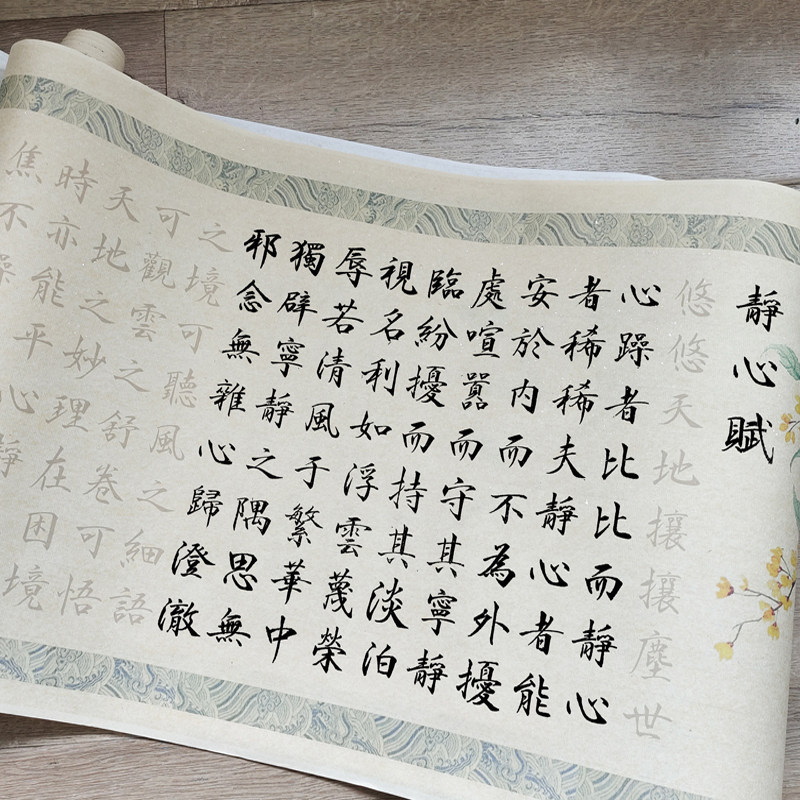 靜心賦
悠悠天地攘攘塵世
心躁者比比而靜心
者稀稀夫靜心者能
安於內而不為外擾
處喧囂而守其寧靜
臨紛擾而持其淡泊
視名利如浮雲蔑榮
辱若清風于繁華中
獨辟寧靜之隅思無
邪念無雜心歸澄澈
之境可聽風之細語
可觀雲之舒卷可悟
天地之妙理在困境
時亦能平心靜
焦不躁